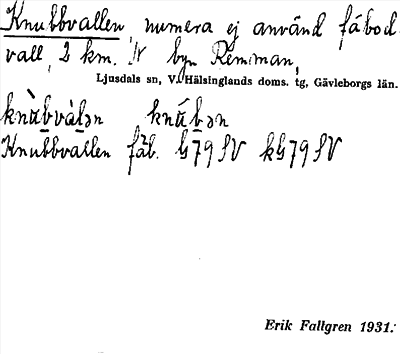 Knubbvallen, numera ej använd fäbod-
vall, 2 km. N byn Remman,
Ljusdals sn, V. Hälsinglands doms. tg, Gävleborgs län.
Knubbvallen fäb. G79SV kG79SV
Erik Fallgren 1931.